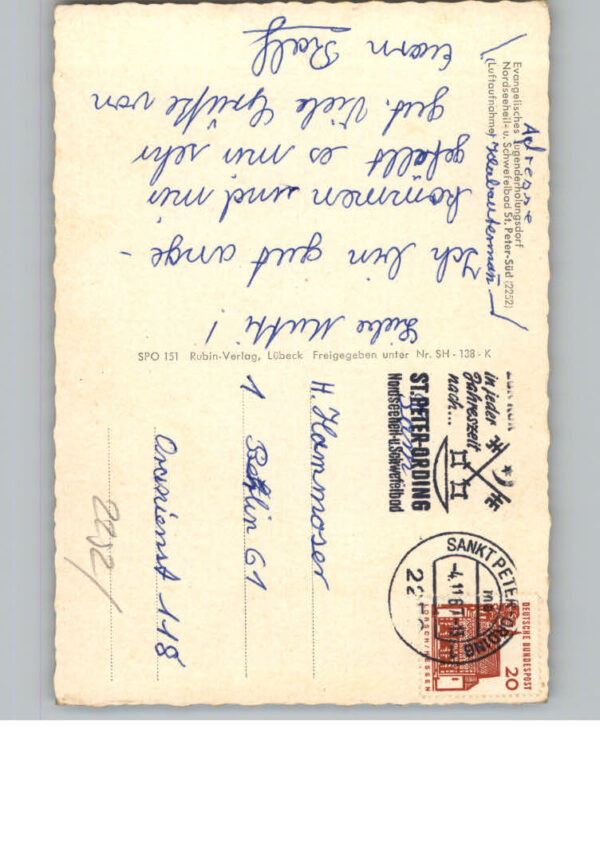 Evangelisches Jugenderholungsdorf
Nordseeheil- u. Schwefelbad St. Peter-Süd (2252)
(Luftaufnahme)
Adresse
Klabautermann
Liebe Mutti!
Ich bin gut ange-
kommen und mir
gefällt es mir sehr
gut. Viele Grüße von
Euern Ralf
SPO 151 Rubin-Verlag, Lübeck Freigegeben unter Nr. SH - 138 - K
ZUR KUR
in jeder
Jahreszeit
nach...
ST. PETER-ORDING
Nordseeheil-u. Schwefelbad
SANKT PETER-ORDING
-4.11.6
DEUTSCHE BUNDESPOST
20
LORSCH/HESSEN
H. Hammoser
1 Berlin 61
2252/